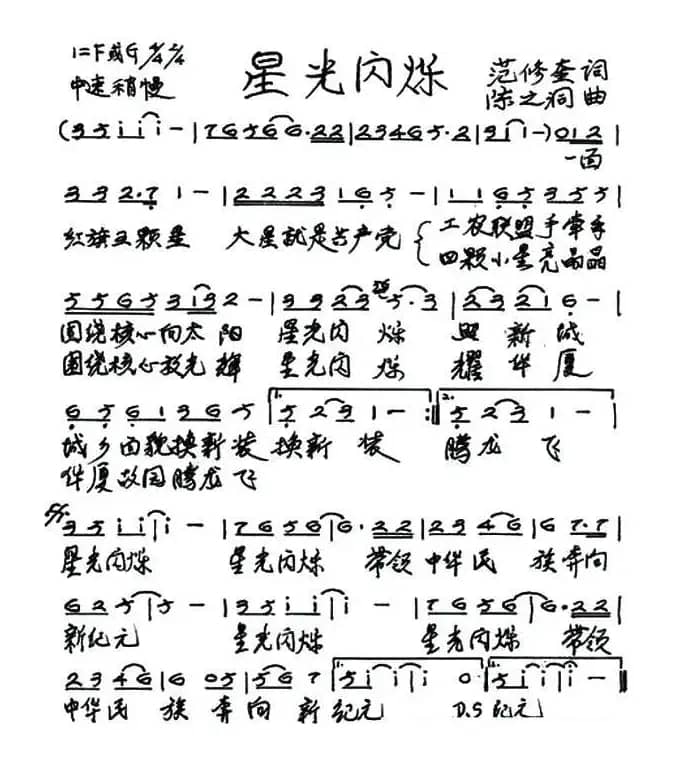 1=F或G 4/4 2/4
星光闪烁
范修奎词
中速稍慢
陈之洞曲
(3 5 i i i - | 7 6 5 6 6· 2 2 | 2 3 4 6 5· 2 | 3 i i -) 0 1 2 |
一面
3 3 2· 7 1 - | 2 2 2 3 1 6 5 - | 1 1 6 5 3 5 5 |
红旗五颗星 大星就是共产党 工农联盟手牵手
四颗小星亮晶晶
5 5 6 5 3 i 3 2 - | 3 3 2 3 5· 3 | 2 3 2 1 6 - |
围绕核心向太阳 星光闪烁 照新城
围绕核心放光辉 星光闪烁 耀华厦
6 5 6 1 3 6 5 | 1. 5 2 3 1 - :| 2. 5 2 3 1 - |
城乡面貌换新装 换新装 腾龙飞
华厦故园腾龙飞
3 5 i i | i - | 7 6 5 6 | 6· 2 2 | 2 3 4 6 | 6 7· 7 |
星光闪烁 星光闪烁 带领中华民族奔向
6 2 5 | 5 - | 3 5 i i | i - | 7 6 5 6 | 6· 2 2 |
新纪元 星光闪烁 星光闪烁 带领
2 3 4 6 | 6 0 5 | 5 6 7 | 1. 5 i | i | i 0· | 2. 5 i | i | i - ||
中华民族奔向新纪元 D.S 纪元